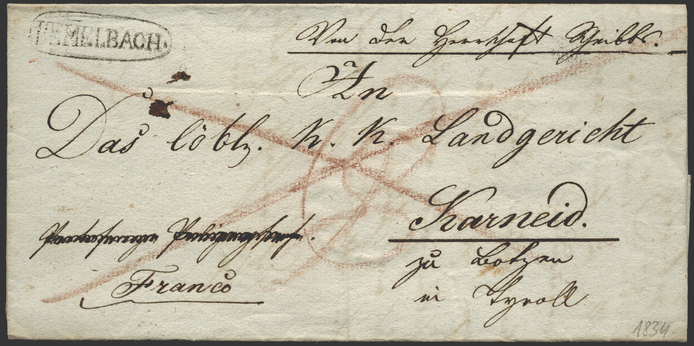 MELBACH.
Von der Herrschaft Scheibbs.
An
Das löbl. K. K. Landgericht
Karneid.
zu Botzen
in Tyroll
Franco
1834